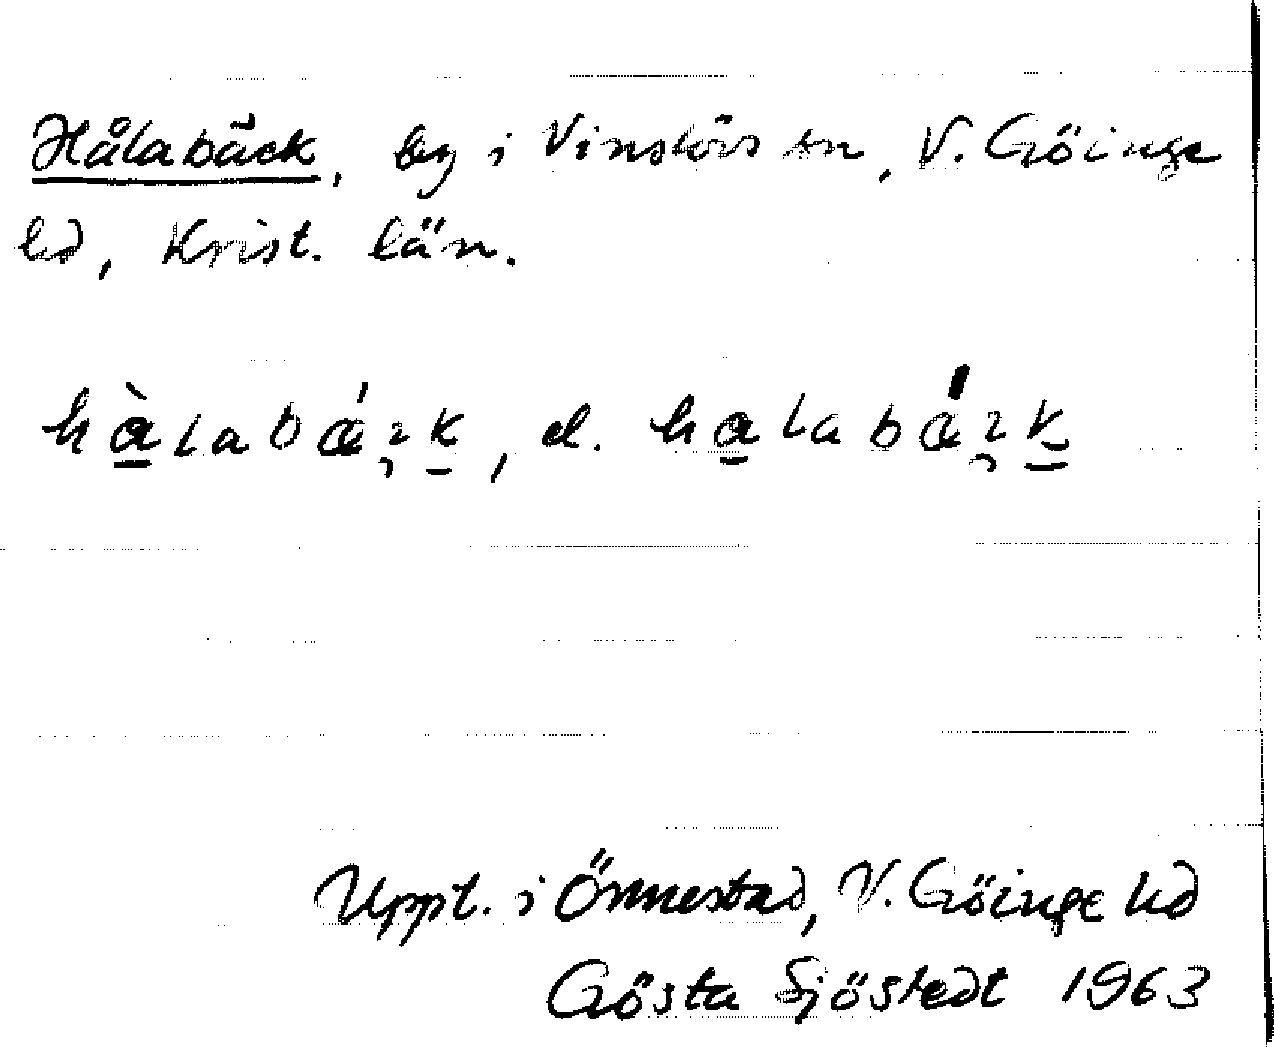 Hålabäck, by i Vinslövs sn, V. Göinge
hd, Krist. län.
hàlabáɀk, el. halabáɀk
Uppt. i Önnestad, V. Göinge hd
Gösta Sjöstedt 1963